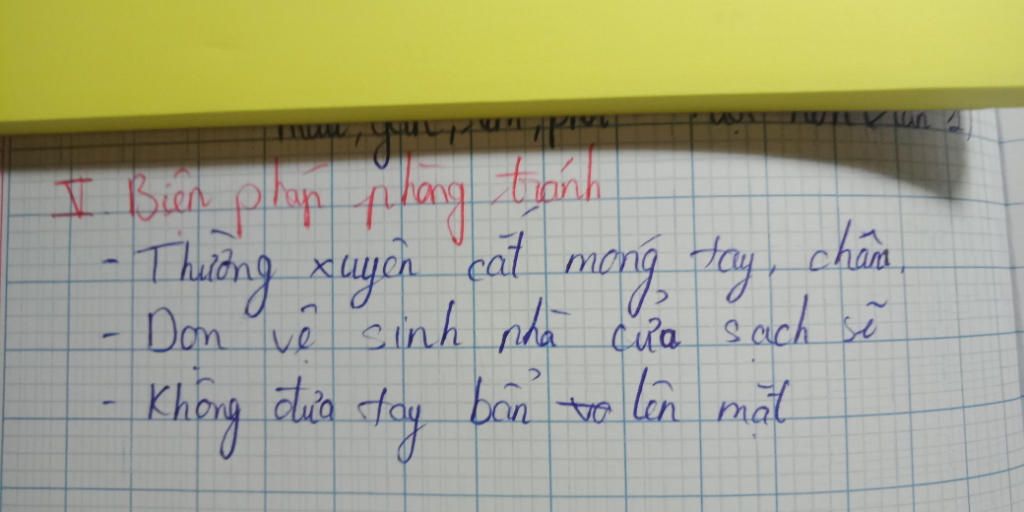 V. Biện pháp phòng tránh
- Thường xuyên cắt móng tay, chân.
- Dọn vệ sinh nhà cửa sạch sẽ
- Không đưa tay bẩn lên mặt